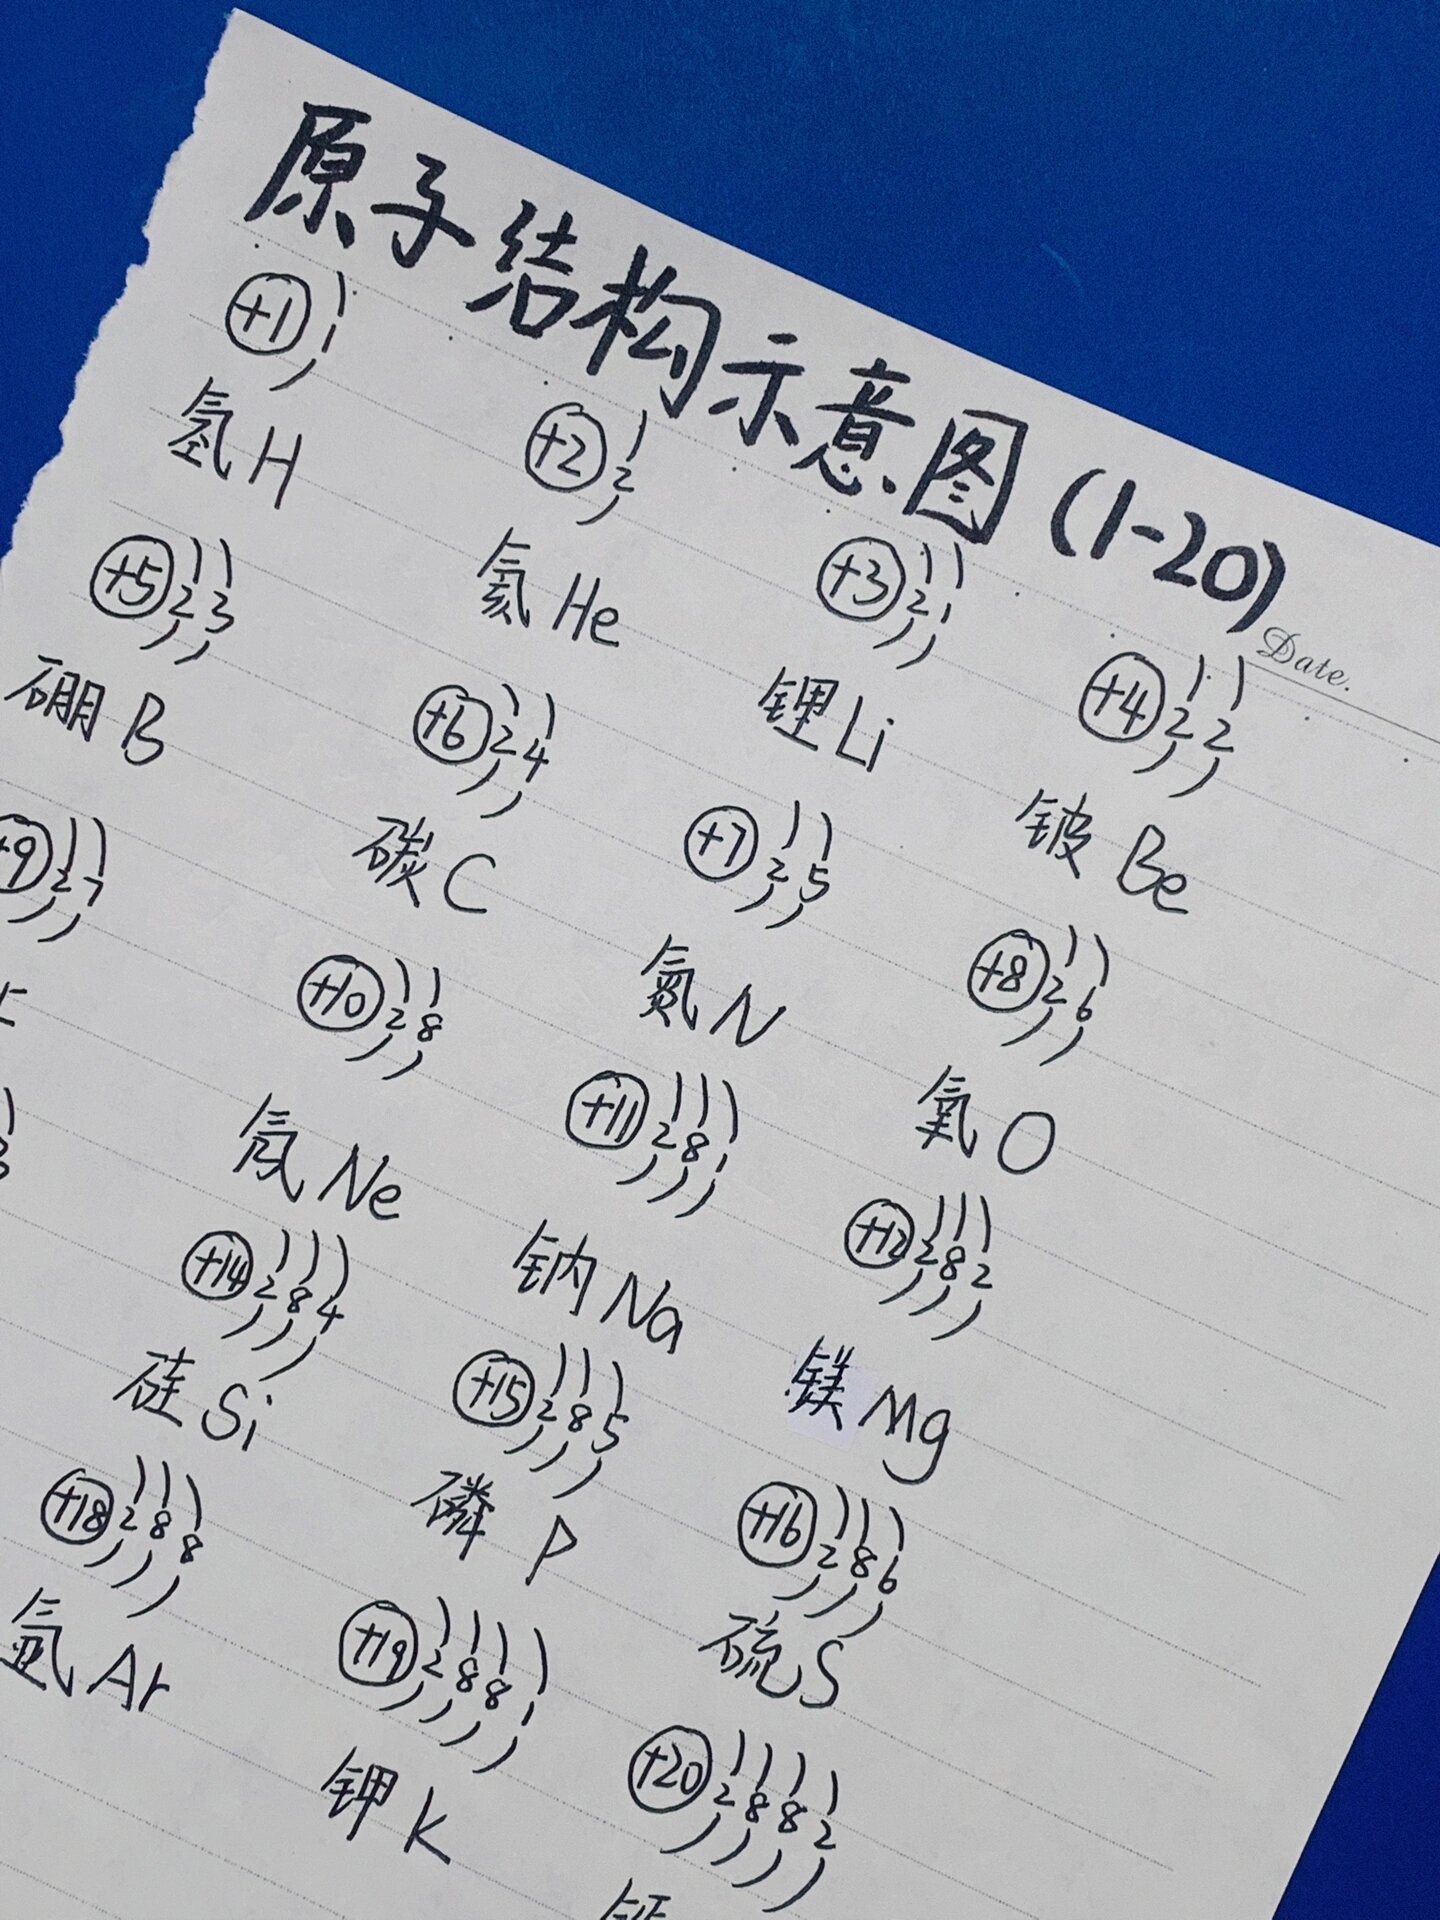 原子结构示意图(1-20)
Date.
+1 1
+2 2
+3 2 1
+4 2 2
氢 H
氦 He
锂 Li
铍 Be
+5 2 3
+6 2 4
+7 2 5
+8 2 6
硼 B
碳 C
氮 N
氧 O
+9 2 7
+10 2 8
+11 2 8 1
+12 2 8 2
氖 Ne
钠 Na
镁 Mg
+14 2 8 4
+15 2 8 5
+16 2 8 6
硅 Si
磷 P
硫 S
+18 2 8 8
+19 2 8 8 1
+20 2 8 8 2
氩 Ar
钾 K